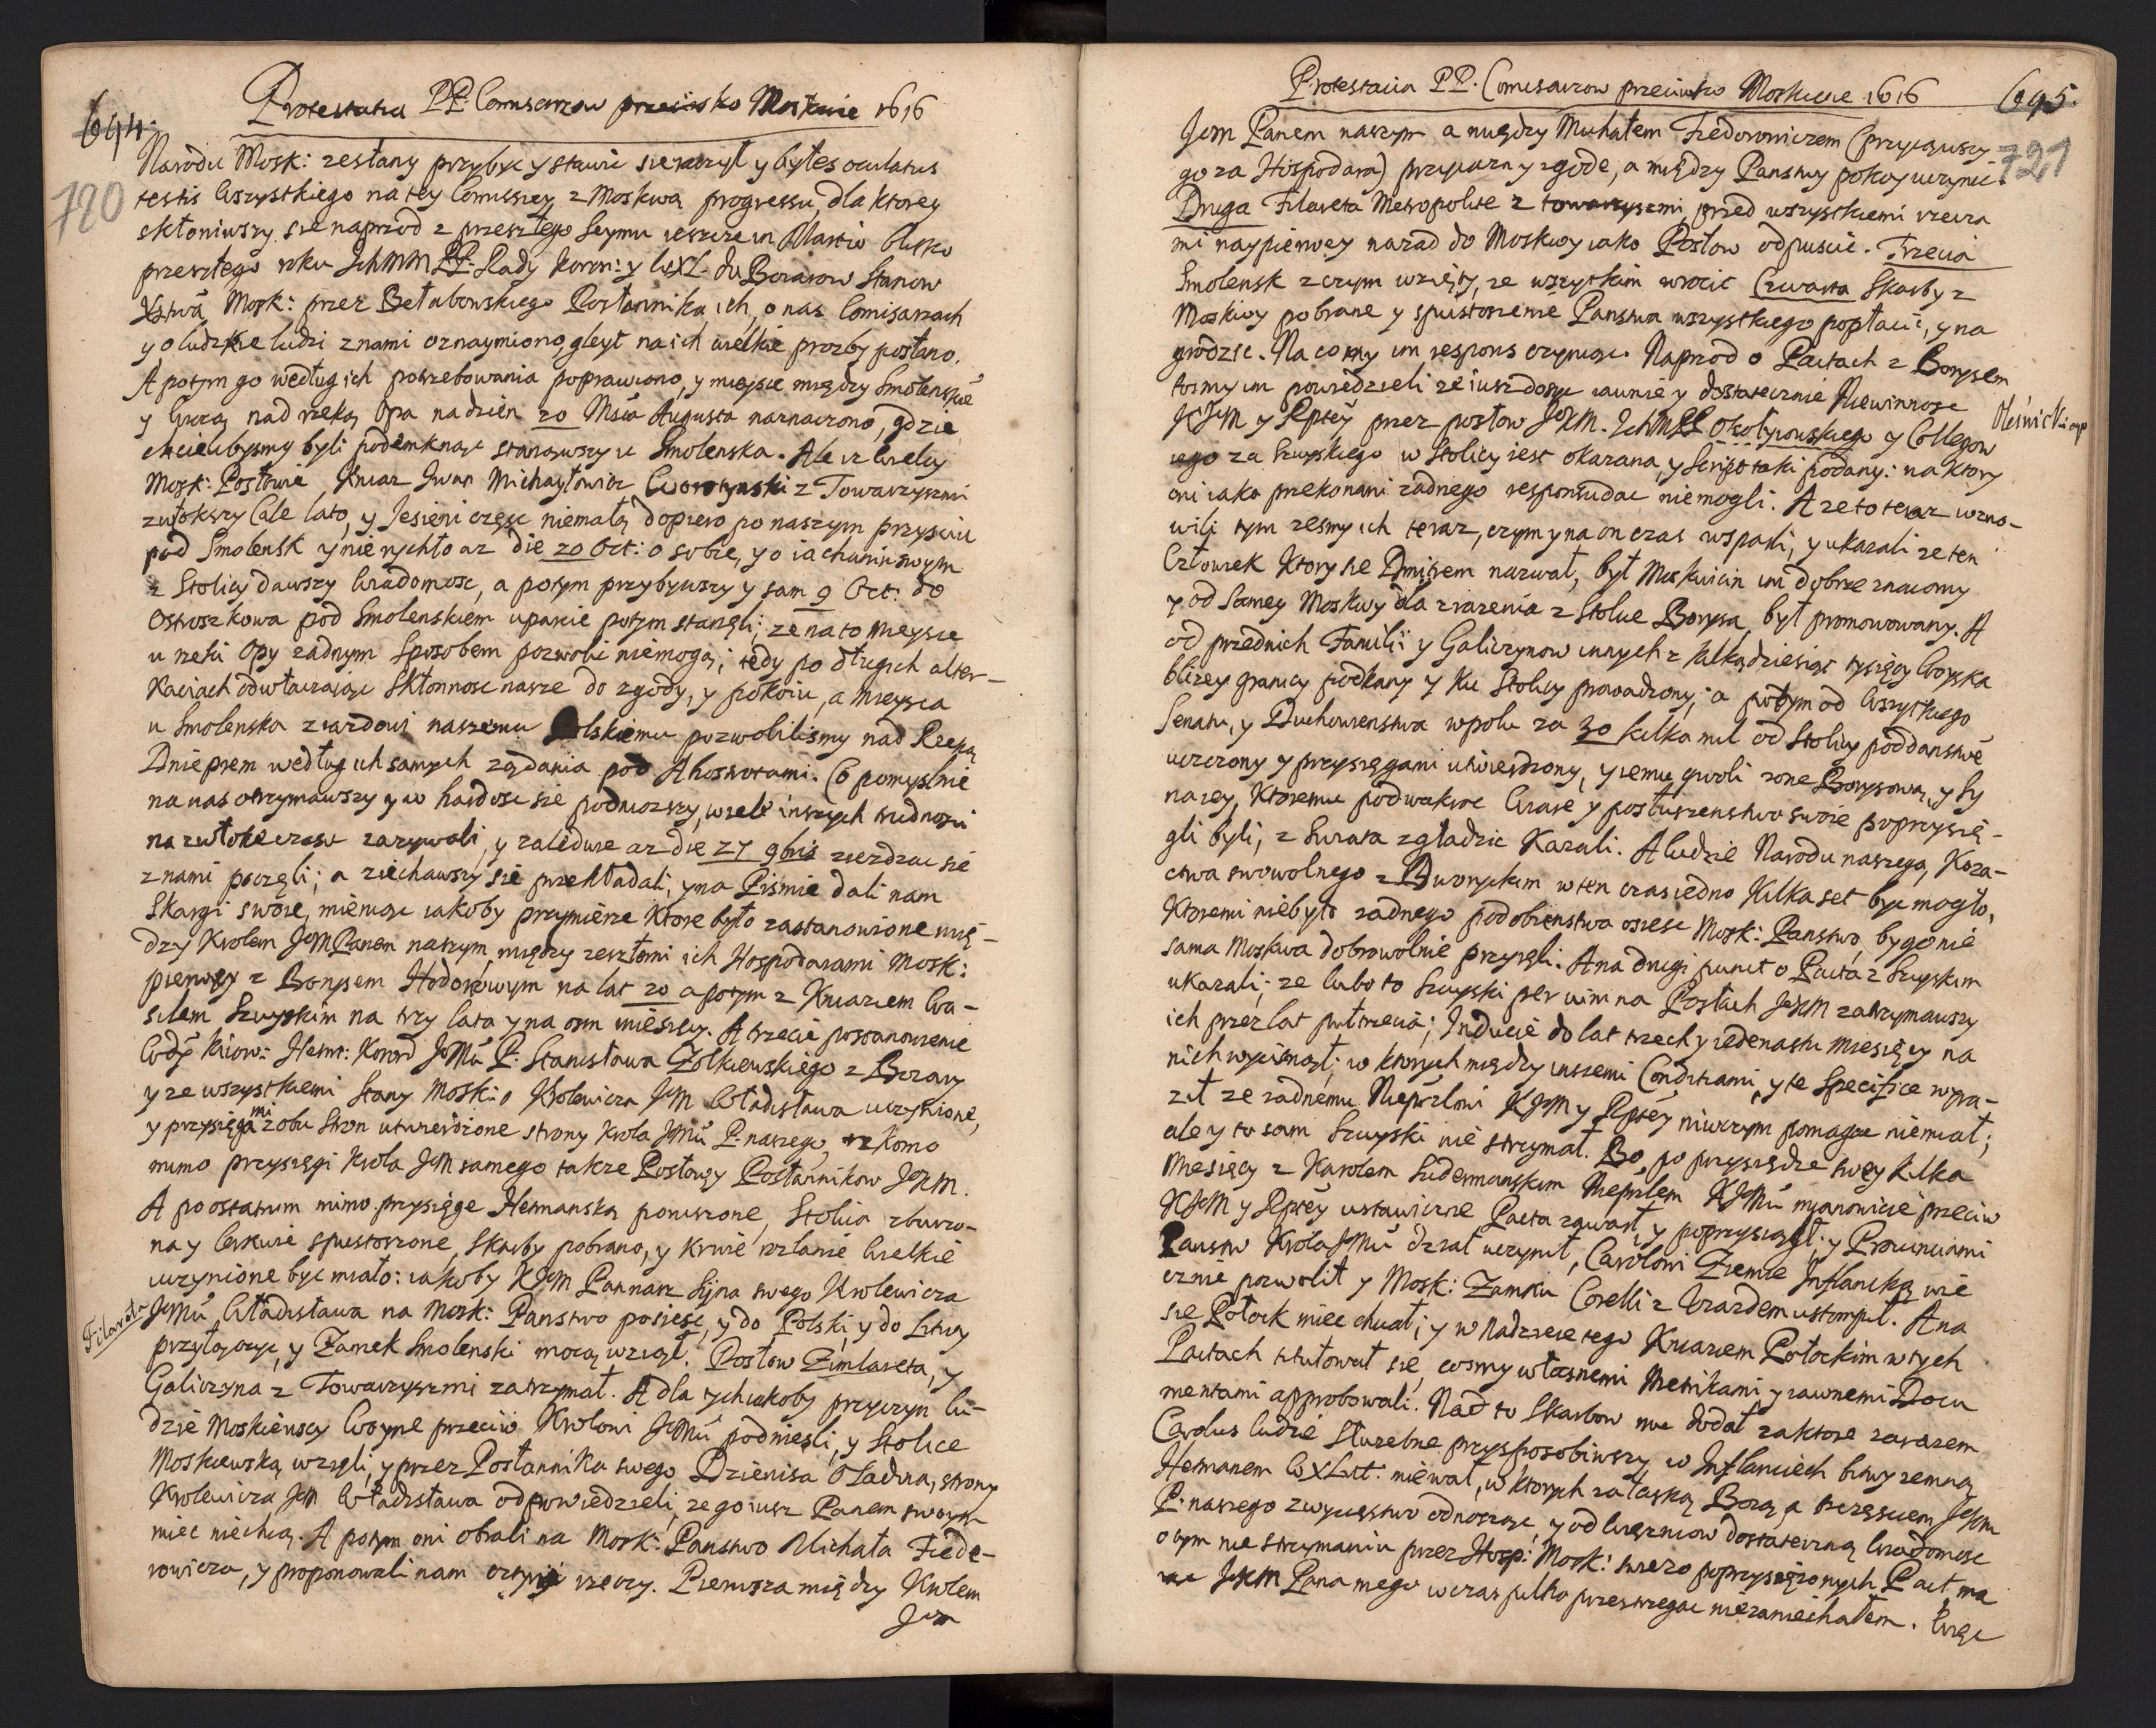 694.
Protestatia PP. Comisarzow przeciwko Moskwie 1616
720
Narodu Mosk: zesłany przybyc y stawic sie raczył y byłes oculatus
testis wszystkiego na tey Comissiey z Moskwą progressu, dla ktorey
skłoniwszy sie naprzod z przeszłego Seymu ieszcze in Martio blisko
przeszłego roku IchMM PP: Rady Koron: y WXL. du Boiarow Stanow
Xstwa Mosk: przez Betabowskiego Posłannika ich, o nas Comisarzach
y o ludzkie ludzi z nami oznaymiono, gleyt na ich wielkie prozby posłano.
A potym go według ich potrzebowania poprawiono, y mieysce między Smolenskiē
y Wiazą nad rzeką Opa na dzien 20 Msca Augusta naznaczono, gdzie
chcielibysmy byli podemknąc stanąwszy u Smolenska. Ale iz wielcy
Mosk: Posłowie Kniaz Iwan Michayłowicz Worotynski z Towarzyszmi
zwłokszy Całe lato, y Jesieni częsc niemałą dopiero po naszym przysciu
pod Smolensk y nierychło az die 20 Oct: o sobie, y o iachaniu swym
z Stolicy dawszy wiadomosc, a potym przybywszy y sam 9 Oct: do
Ostroszkowa pod Smolenskiem uparcie potym stanęli; ze na to mieysce
u rzeki Opy zadnym Sposobem pozwolic niemogą; tedy po długich alter-
kaciach odwłaczaiąc Skłonnosc nasze do zgody, y pokoiu, a mieysca
u Smolenska zwrdowi naszemu Polskiemu pozwolilismy nad Rzeką
Dnieprem według ich samych ządania pod Ahostorami. Co pomyslnie
na nas otrzymawszy y w hardosc sie podniozszy, wiele inszych trudnosci
na zwłokę czasu zazywali, y zaledwie az die 27 9bris ziezdzac się
z nami poczęli; a ziechawszy się przekładali, y na Piśmie dali nam
Skargi swoie, mieniąc iakoby przymierze ktore było zastanowione mię-
dzy Krolem JeM Panem naszym, między zeszłemi ich Hospodarami Mosk:
pierwey z Borysem Hodonowym na lat 20 a potym z Kniaziem Wa-
silem Szuyskim na trzy lata y na osm miesięcy. A trzecie postanowienie
Wody Kiow: Hetm: Koron̄ JeMū P: Stanisława Zołkiewskiego z Boiary
y ze wszystkiemi Stany Mosk: o Krolewicza JeM Władisława uczynione,
y przysięgami z obu Stron utwierdzione strony Krola JeMū P: naszego rzkomo
mimo przysięgi Krola JeM samego takze Posłow y Posłannikow JKM.
A po ostatnim mimo przysięge Hetmanską poruszone, Stolica zburzo-
na y Cerkwie spustoszone, Skarby pobrano, y krwie rozlanie wielkie
uczynione byc miało: iakoby KJeM Pan nasz Syna swego Krolewicza
JeMū Władisława na Mosk: Panstwo posiesc, y do Polski y do Litwy
Filareta
przyłączyc, y Zamek Smolenski mocą wziął. Posłow Zimlareta, y
Galiczyna z Towarzyszmi zatrzymał. A dla tych iakoby przyczyn lu-
dzie Moskiewscy Woynę przeciw Krolowi JeMū podniesli, y Stolice
Moskiewską wzięli, y przez Posłannika swego Dzienisa Oladina, strony
Krolewicza JeM Władisława odpowiedzieli, ze go iusz Panem swoym
miec niechcą. A potym oni obrali na Mosk: Panstwo Michała Fiede-
rowicza, y proponowali nam cztyri rzeczy. Pierwsza między Krolem
Jem

Protestacia PP. Comisarzow przeciwko Moskwie 1616
695.
721
Jem Panem naszym a między Michałem Fiedorowiczem (przyiąwszy
go za Hospodara) przyiazn y zgode, a między Panstwy pokoy uczynic.
Druga Filareta Metropolite z towarzyszmi, przed wszystkiemi rzecza
mi naypierwey nazad do Moskwy iako Posłow odpuscic. Trzecia
Smolensk z czym wzięty, ze wszytkim wrocic Czwarta Skarby z
Moskwy pobrane y spustoszenie Panstwa wszystkiego popłacic, y na
grodzic. Na co my im respons czyniąc. Naprzod o Pactach z Borysem
tosmy im powiedzieli ze iusz dosyc iawnie y dostatecznie Niewinnosc
KJeM y Rptey przez posłow JKM. IchMPP Okolipowskiego y Collegow
Oleśnickiego
iego za Szuyskiego w Stolicy iest okazana, y Script taki podany: na ktory
oni iako przekonani zadnego responsu dac niemogli. A ze to teraz wzno-
wili tym zesmy ich teraz, czym y na on czas wsparli, y ukazali ze ten
Człowiek ktory sie Dmitrem nazwał, był Moskwicin im dobrze znaiomy
y od Samey Moskwy dla zrazenia z Stolce Borysa był promowowany. A
od przednich Familii y Galiczynow innych z kilkądziesiąt tysięcy Woyska
blizey granicy podkany y ku Stolicy prowadzony; a potym od wszytkiego
Senatu, y Duchowienstwa w polu za 30 kilka mil od Stolicy poddanstwē
uczczony y przysięgami utwierdzony, y iemu gwoli zone Borysową, y Sy
na iey, ktoremu podwakroc wiare y posłuszenstwo swoie poprzysię-
gli byli, z Swiata zgładzic kazali. A ludzie Narodu naszego, Koza-
ctwa swowolnego z Dworyckim w ten czas iedno kilka set byc mogło,
ktoremi niebyło zadnego podobienstwa osiesc Mosk: Panstwo, by go nie
sama Moskwa dobrowolnie przyięli. A na drugi punct o Pacta z Szuyskim
ukazali; ze lubo to Szuyski per vim na Posłach JKM zatrzymawszy
ich przez lat puł trzecia; Inducie do lat trzech y iedenastu miesięcy na
nich wycisnął; w ktorych między inszemi Conditiami, y te Specifice wyra-
ził ze zadnemu Niepszlowi KJeM y Rptey niwczym pomagac niemiał;
ale y to sam Szuyski nie strzymał. Bo po przysiędze swey kilka
Miesięcy z Karolem Sudermanskim Nieprzlem KJeMū mianowicie przeciw
KJeM y Rptey ustawiczne Pacta zawarł, y poprzysiągł; y Prowinciami
Panstw Krola JeMū dział uczynił, Carolowi Ziemie Inflancką wie
cznie pozwolił y Mosk: Zamku Corelli z Uiazdem ustompił. A na
sie Połock miec chciał; y w nadzieie tego Kniaziem Połockim w tych
Pactach titułował się, cosmy własnemi Metrikami y iawnemi Docu
mentami approbowali. Nad to Skarbow mu dodał za ktore zarazem
Carolus ludzie Słuzebne przysposobiwszy w Inflanciech bitwy zemną
Hetmanem WXLit: miewał, w ktorych za łaską Bozą a sczęsciem JKM
P: naszego zwycięstwo odnosząc, y od więzniow dostateczną wiadomosc
o tym nie strzymaniu przez Hosp: Mosk: swiezo poprzysięzonych Pact, ma
iac JKM Pana mego wczas pilno przestrzegac niezaniechałem. Więc